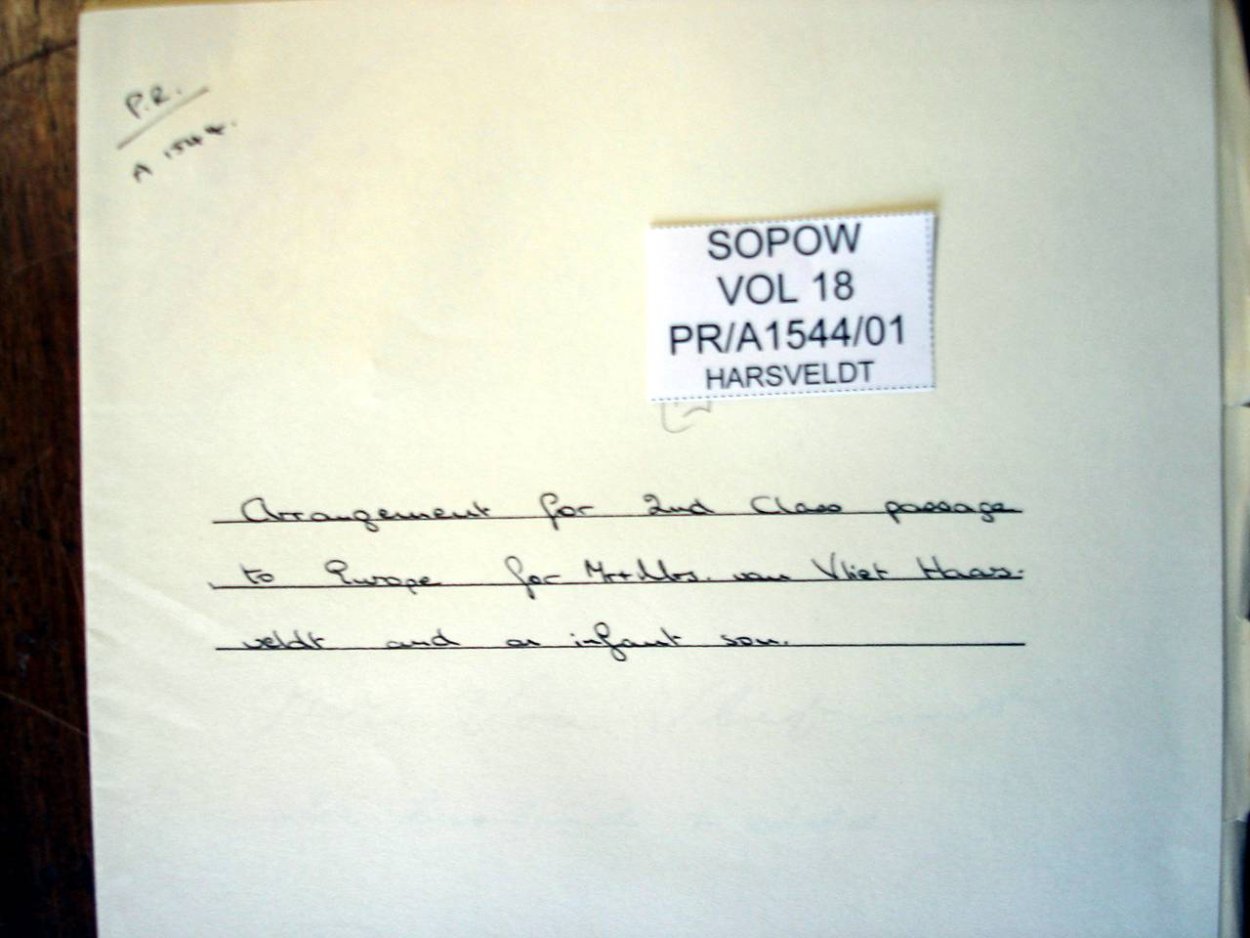 P.R.
A 1544.
SOPOW
VOL 18
PR/A1544/01
HARSVELDT
Arrangement for 2nd Class passage
to Europe for Mr+Mrs. van Vliet Haars-
veldt and an infant son.